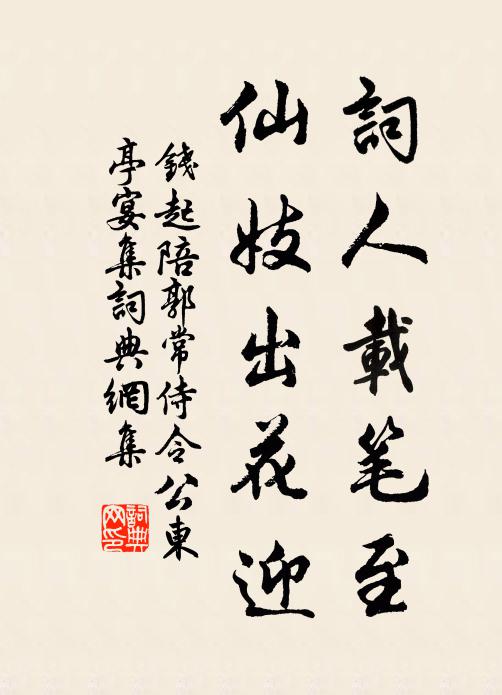 詞人載笔至
仙妓出花迎
錢起陪郭常侍令公東
亭宴集詞典網集
詞典
网印